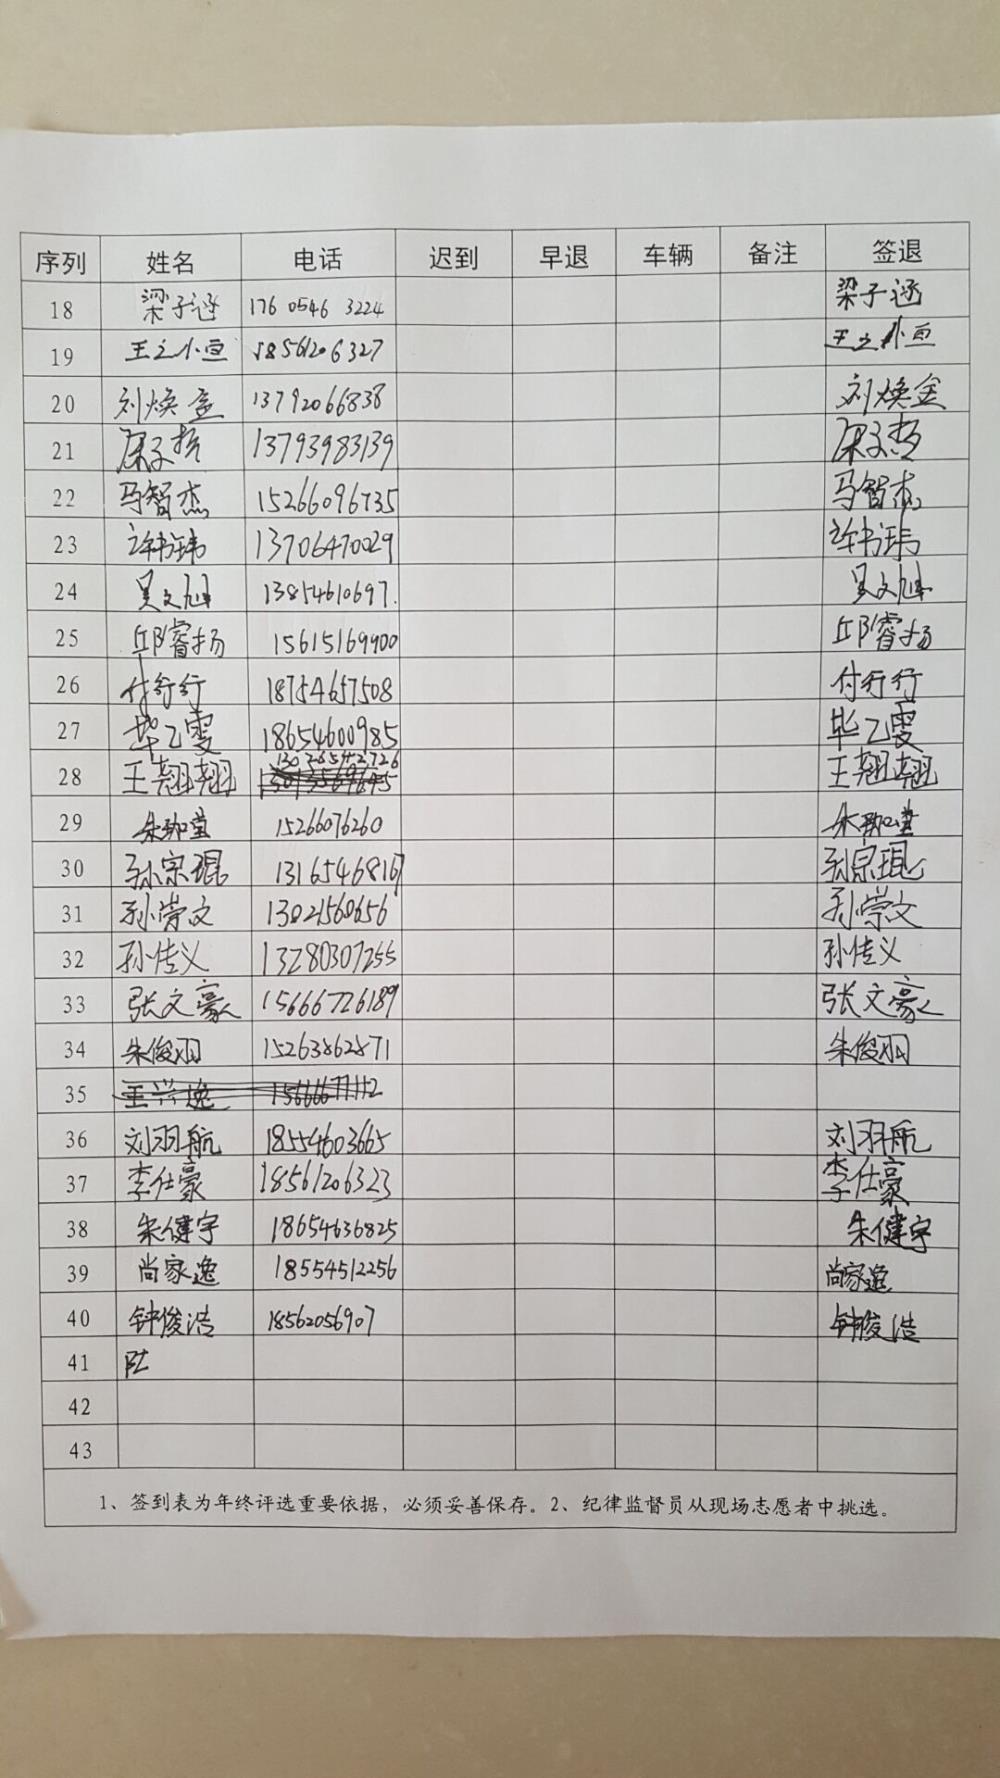 序列 姓名 电话 迟到 早退 车辆 备注 签退
18 梁子涵 176 0546 3224 梁子涵
19 王之小亘 18561206327 王之小亘
20 刘焕金 13792066838 刘焕金
21 13793983139
22 马智杰 15266096735 马智杰
23 许书玮 13706470029 许书玮
24 吴文旭 13854610697. 吴文旭
25 邱睿扬 15615169900 邱睿扬
26 付行行 18754657508 付行行
27 毕乙雯 18654600985 毕乙雯
28 王翘翘 13026542726 王翘翘
29 15266076260
30 孙宗琨 孙宗琨
31 孙崇文 13021560656 孙崇文
32 孙传义 13280307255 孙传义
33 张文豪 15666726189 张文豪
34 朱俊羽 15263862871 朱俊羽
35
36 刘羽航 18554603665 刘羽航
37 李仕豪 18561206323 李仕豪
38 朱健宇 18654636825 朱健宇
39 尚家逸 18554512256 尚家逸
40 钟俊浩 18562056907 钟俊浩
41
42
43
1、签到表为年终评选重要依据，必须妥善保存。2、纪律监督员从现场志愿者中挑选。